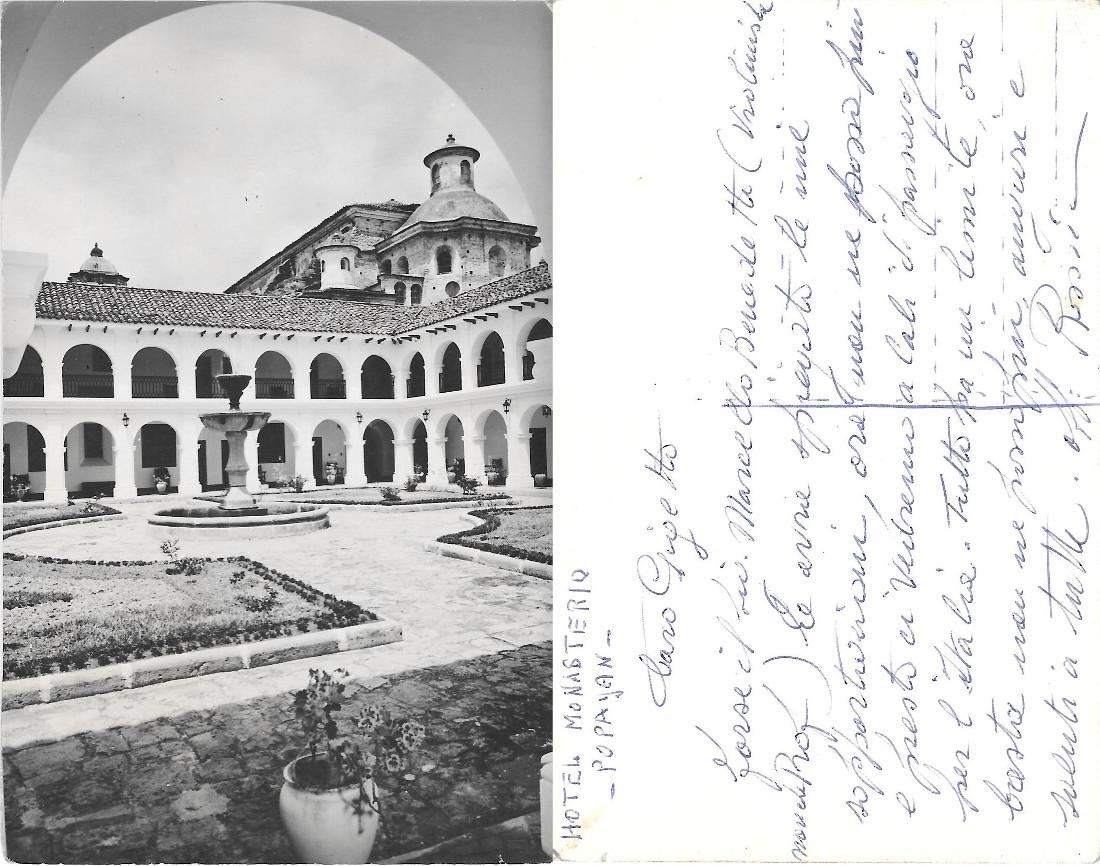 HOTEL MONASTERIO
- POPAYAN -
Caro Gigetto
Forse il Sig. Marcello Benedetti (Violinista
Prof) Le avrà spiegato le mie
opposizioni, ora non ne posso più
e presto ci vedremo a Cali di passaggio
per l'Italia. Tutto ha un limite, ora
basta non ne posso più, auguri e
saluti a tutti. Aff. Rossi